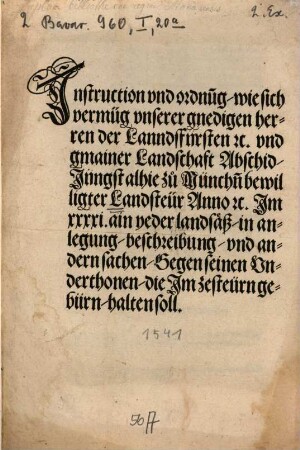 2 Bavar. 960, I, 20a
2. Ex.
Instruction vnd ordnũg wie sich
vermüg vnserer gnedigen her-
ren der Lanndsfürsten ꝛc. vnd
gmainer Landschaft Abschid-
Jüngst alhie zů Münchñ bewil
ligter Landsteür Anno ꝛc. Im
xxxxi. ain yeder landsäß-in an-
legung-beschreibung-vnd an-
dern sachen-Gegen seinen Vn-
derthonen-die Im zesteürn ge-
bürn-halten soll.
1541